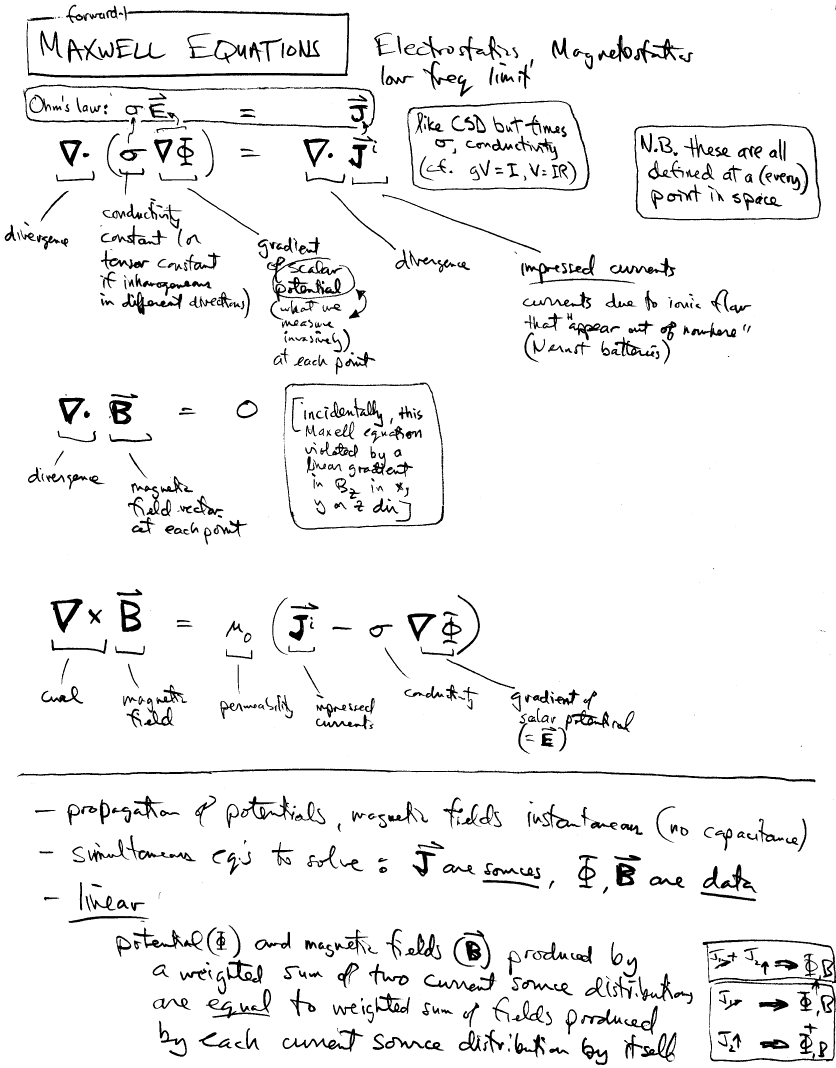 forward-1
MAXWELL EQUATIONS
Electrostatics, Magnetostatics
low freq limit
Ohm's law: σ E⃗ = J⃗
∇· (σ ∇Φ) = ∇· J⃗ⁱ
like CSD but times
σ, conductivity
(cf. gV = I, V = IR)
N.B. these are all
defined at a (every)
point in space
divergence
conductivity
constant (or
tensor constant
if inhomogeneous
in different directions)
gradient
of scalar
potential
(what we
measure
invasively)
at each point
divergence
impressed currents
currents due to ionic flow
that "appear out of nowhere"
(Nernst batteries)
∇· B⃗ = 0
[incidentally, this
Maxell equation
violated by a
linear gradient
in B_z in x,
y or z dir]
divergence
magnetic
field vector
at each point
∇ × B⃗ = μ₀ (J⃗ⁱ − σ ∇Φ)
curl
magnetic
field
permeability
impressed
currents
conductivity
gradient of
salar potential
(= E⃗)
- propagation of potentials, magnetic fields instantaneous (no capacitance)
- simultaneous eq's to solve : J⃗ are sources, Φ, B⃗ are data
- linear
potential (Φ) and magnetic fields (B⃗) produced by
a weighted sum of two current source distributions
are equal to weighted sum of fields produced
by each current source distribution by itself
J₁→ + J₂↑ ⇒ Φ, B
J₁→ ⇒ Φ, B
+
J₂↑ ⇒ Φ, B